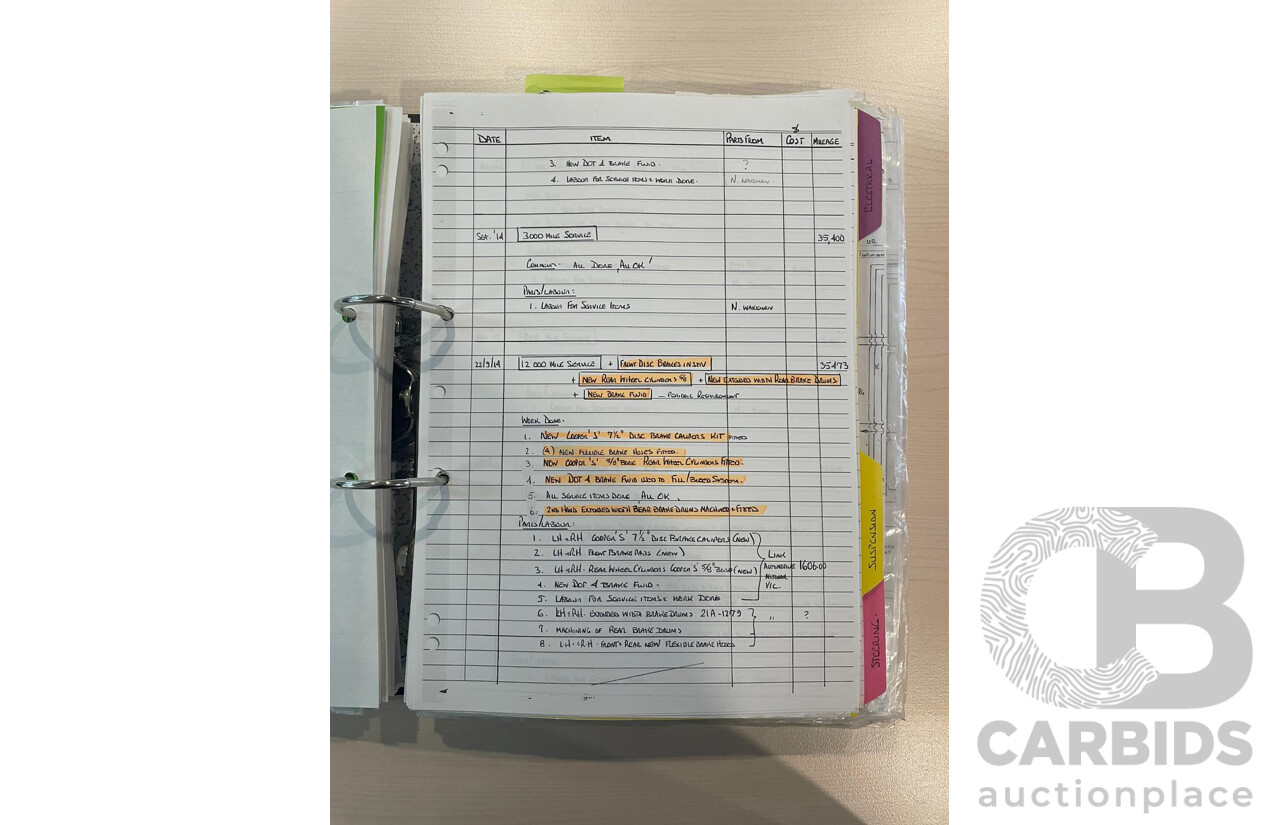 $
DATE ITEM PARTS FROM COST MILEAGE
3. NEW DOT 4 BRAKE FLUID. ?
4. LABOUR FOR SERVICE ITEMS & WORK DONE. N. WAKEMAN.
SEPT. '14 3000 MILE SERVICE 35,400
COMMENT:- ALL DONE, ALL OK!
PARTS/LABOUR:
1. LABOUR FOR SERVICE ITEMS N. WAKEMAN
22/9/14 12 000 MILE SERVICE + FRONT DISC BRAKES 35473
+ NEW REAR WHEEL CYLINDERS 5/8 + NEW EXTENDED WIDTH REAR BRAKE DRUMS
+ NEW BRAKE FLUID - PERIODIC REQUIREMENT
WORK DONE.
1. NEW COOPER 'S' 7½" DISC BRAKE CALIPERS KIT FITTED
2. (4) NEW FLEXIBLE BRAKE HOSES FITTED.
3. NEW COOPER 'S' 5/8" BORE REAR WHEEL CYLINDERS FITTED.
4. NEW DOT 4 BRAKE FLUID USED TO FILL/BLEED SYSTEM.
5. ALL SERVICE ITEMS DONE, ALL OK.
6. 2ND HAND EXTENDED WIDTH REAR BRAKE DRUMS MACHINED & FITTED
PARTS/LABOUR:
1. LH & RH COOPER 'S' 7½" DISC BRAKE CALIPERS (NEW)
2. LH & RH FRONT BRAKE PADS (NEW) LINK
3. LH & RH. REAR WHEEL CYLINDERS COOPER 'S' 5/8" BORE (NEW) AUTOMOTIVE 1606.00
4. NEW DOT 4 BRAKE FLUID. VIC.
5. LABOUR FOR SERVICE ITEMS & WORK DONE
6. LH & RH. EXTENDED WIDTH BRAKE DRUMS 21A-1279 " ?
7. MACHINING OF REAR BRAKE DRUMS
8. LH. & R.H. FRONT & REAR NEW FLEXIBLE BRAKE HOSES
ELECTRICAL
SUSPENSION
STEERING.
CB
CARBIDS
auctionplace